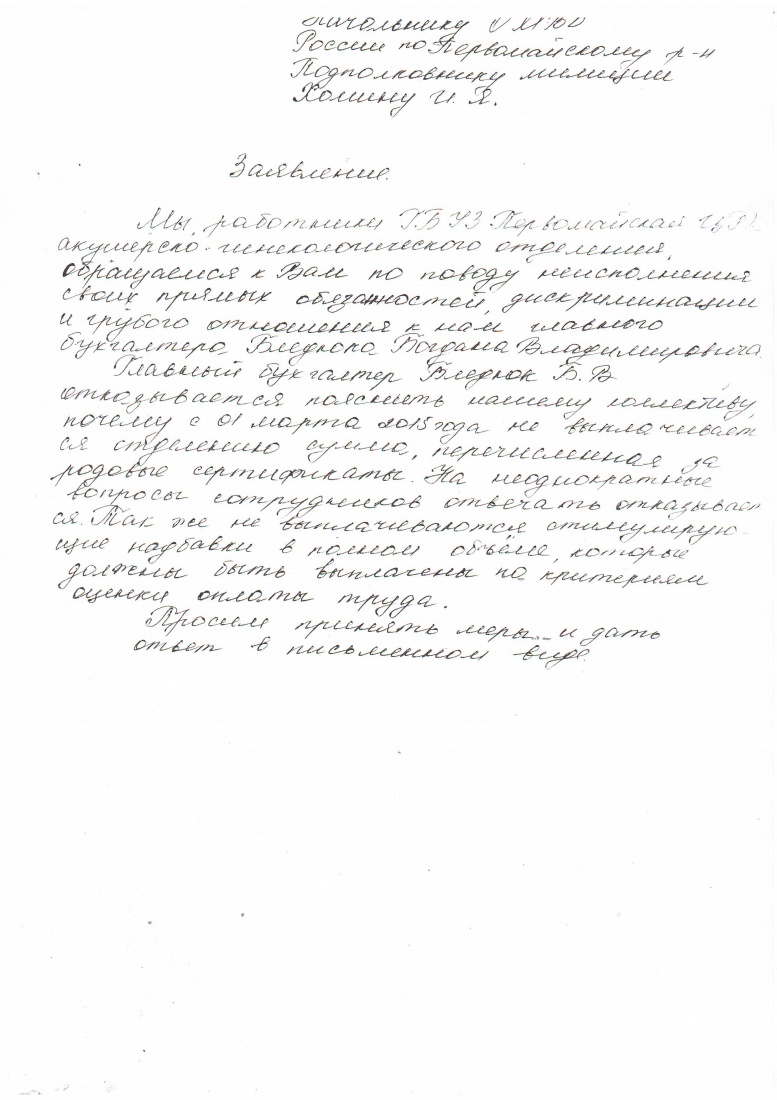 Начальнику
России по Первомайскому р-н
Подполковнику милиции
Хомину И. Я.
Заявление.
Мы, работники ГБУЗ Первомайская ЦРБ
акушерско-гинекологического отделения,
обращаемся к Вам по поводу неисполнения
своих прямых обязанностей, дискриминации
и грубого отношения к нам главного
бухгалтера Бледнюка Богдана Владимировича.
Главный бухгалтер Бледнюк Б. В
отказывается пояснить нашему коллективу,
почему с 01 марта 2015 года не выплачивает
ся отделению сумма, перечисленная за
родовые сертификаты. На неоднократные
вопросы сотрудников отвечать отказывает
ся. Так же не выплачиваются стимулирую-
щие надбавки в полном объёме, которые
должны быть выплачены по критериям
оценки оплаты труда.
Просим принять меры и дать
ответ в письменном виде.